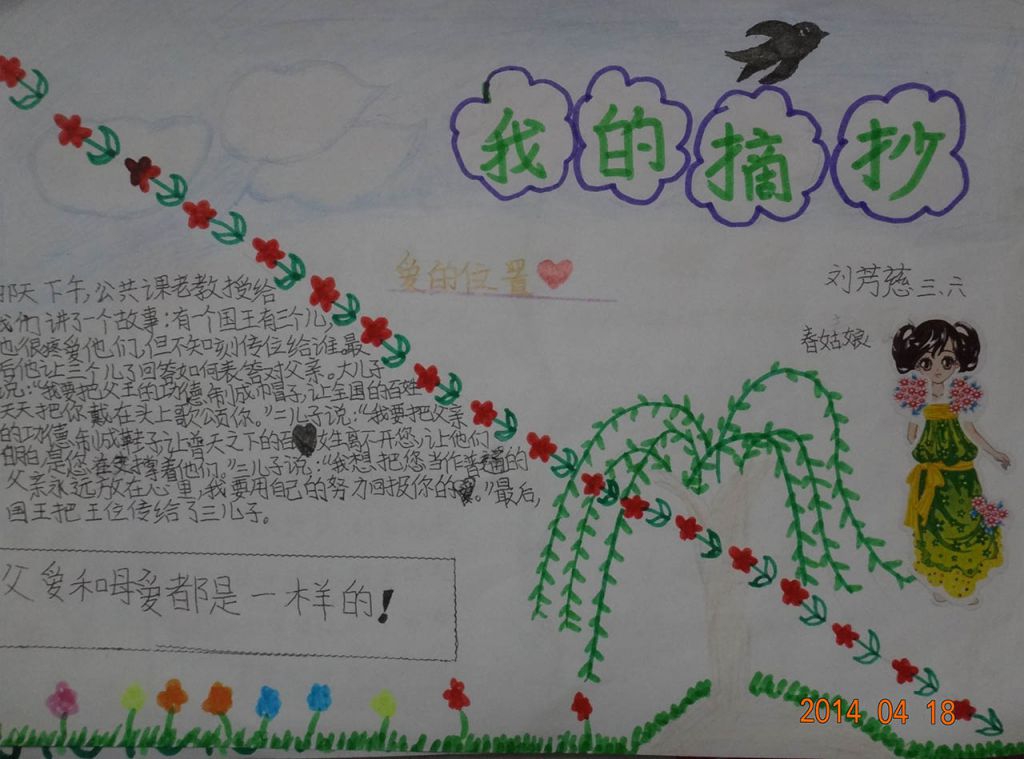 我的摘抄
爱的位置
刘芳慈三、六
春姑娘
那天下午,公共课老教授给
我们讲了一个故事:有一个国王有三个儿,
他很疼爱他们,但不知刻传位给谁。最
后他让三个儿子回答如何表答对父亲。大儿子
说:“我要把父王的功德制成帽子,让全国的百姓
天天把你戴在头上歌颂你。”二儿子说:“我要把父亲
的功德制成鞋子,让普天之下的百姓离不开您,让他们
明白,是您在支撑着他们。”三儿子说:“我想把您当作普通的
父亲永远放在心里,我要用自己的努力回报你的。”最后,
国王把王位传给了三儿子。
父爱和母爱都是一样的!
2014 04 18